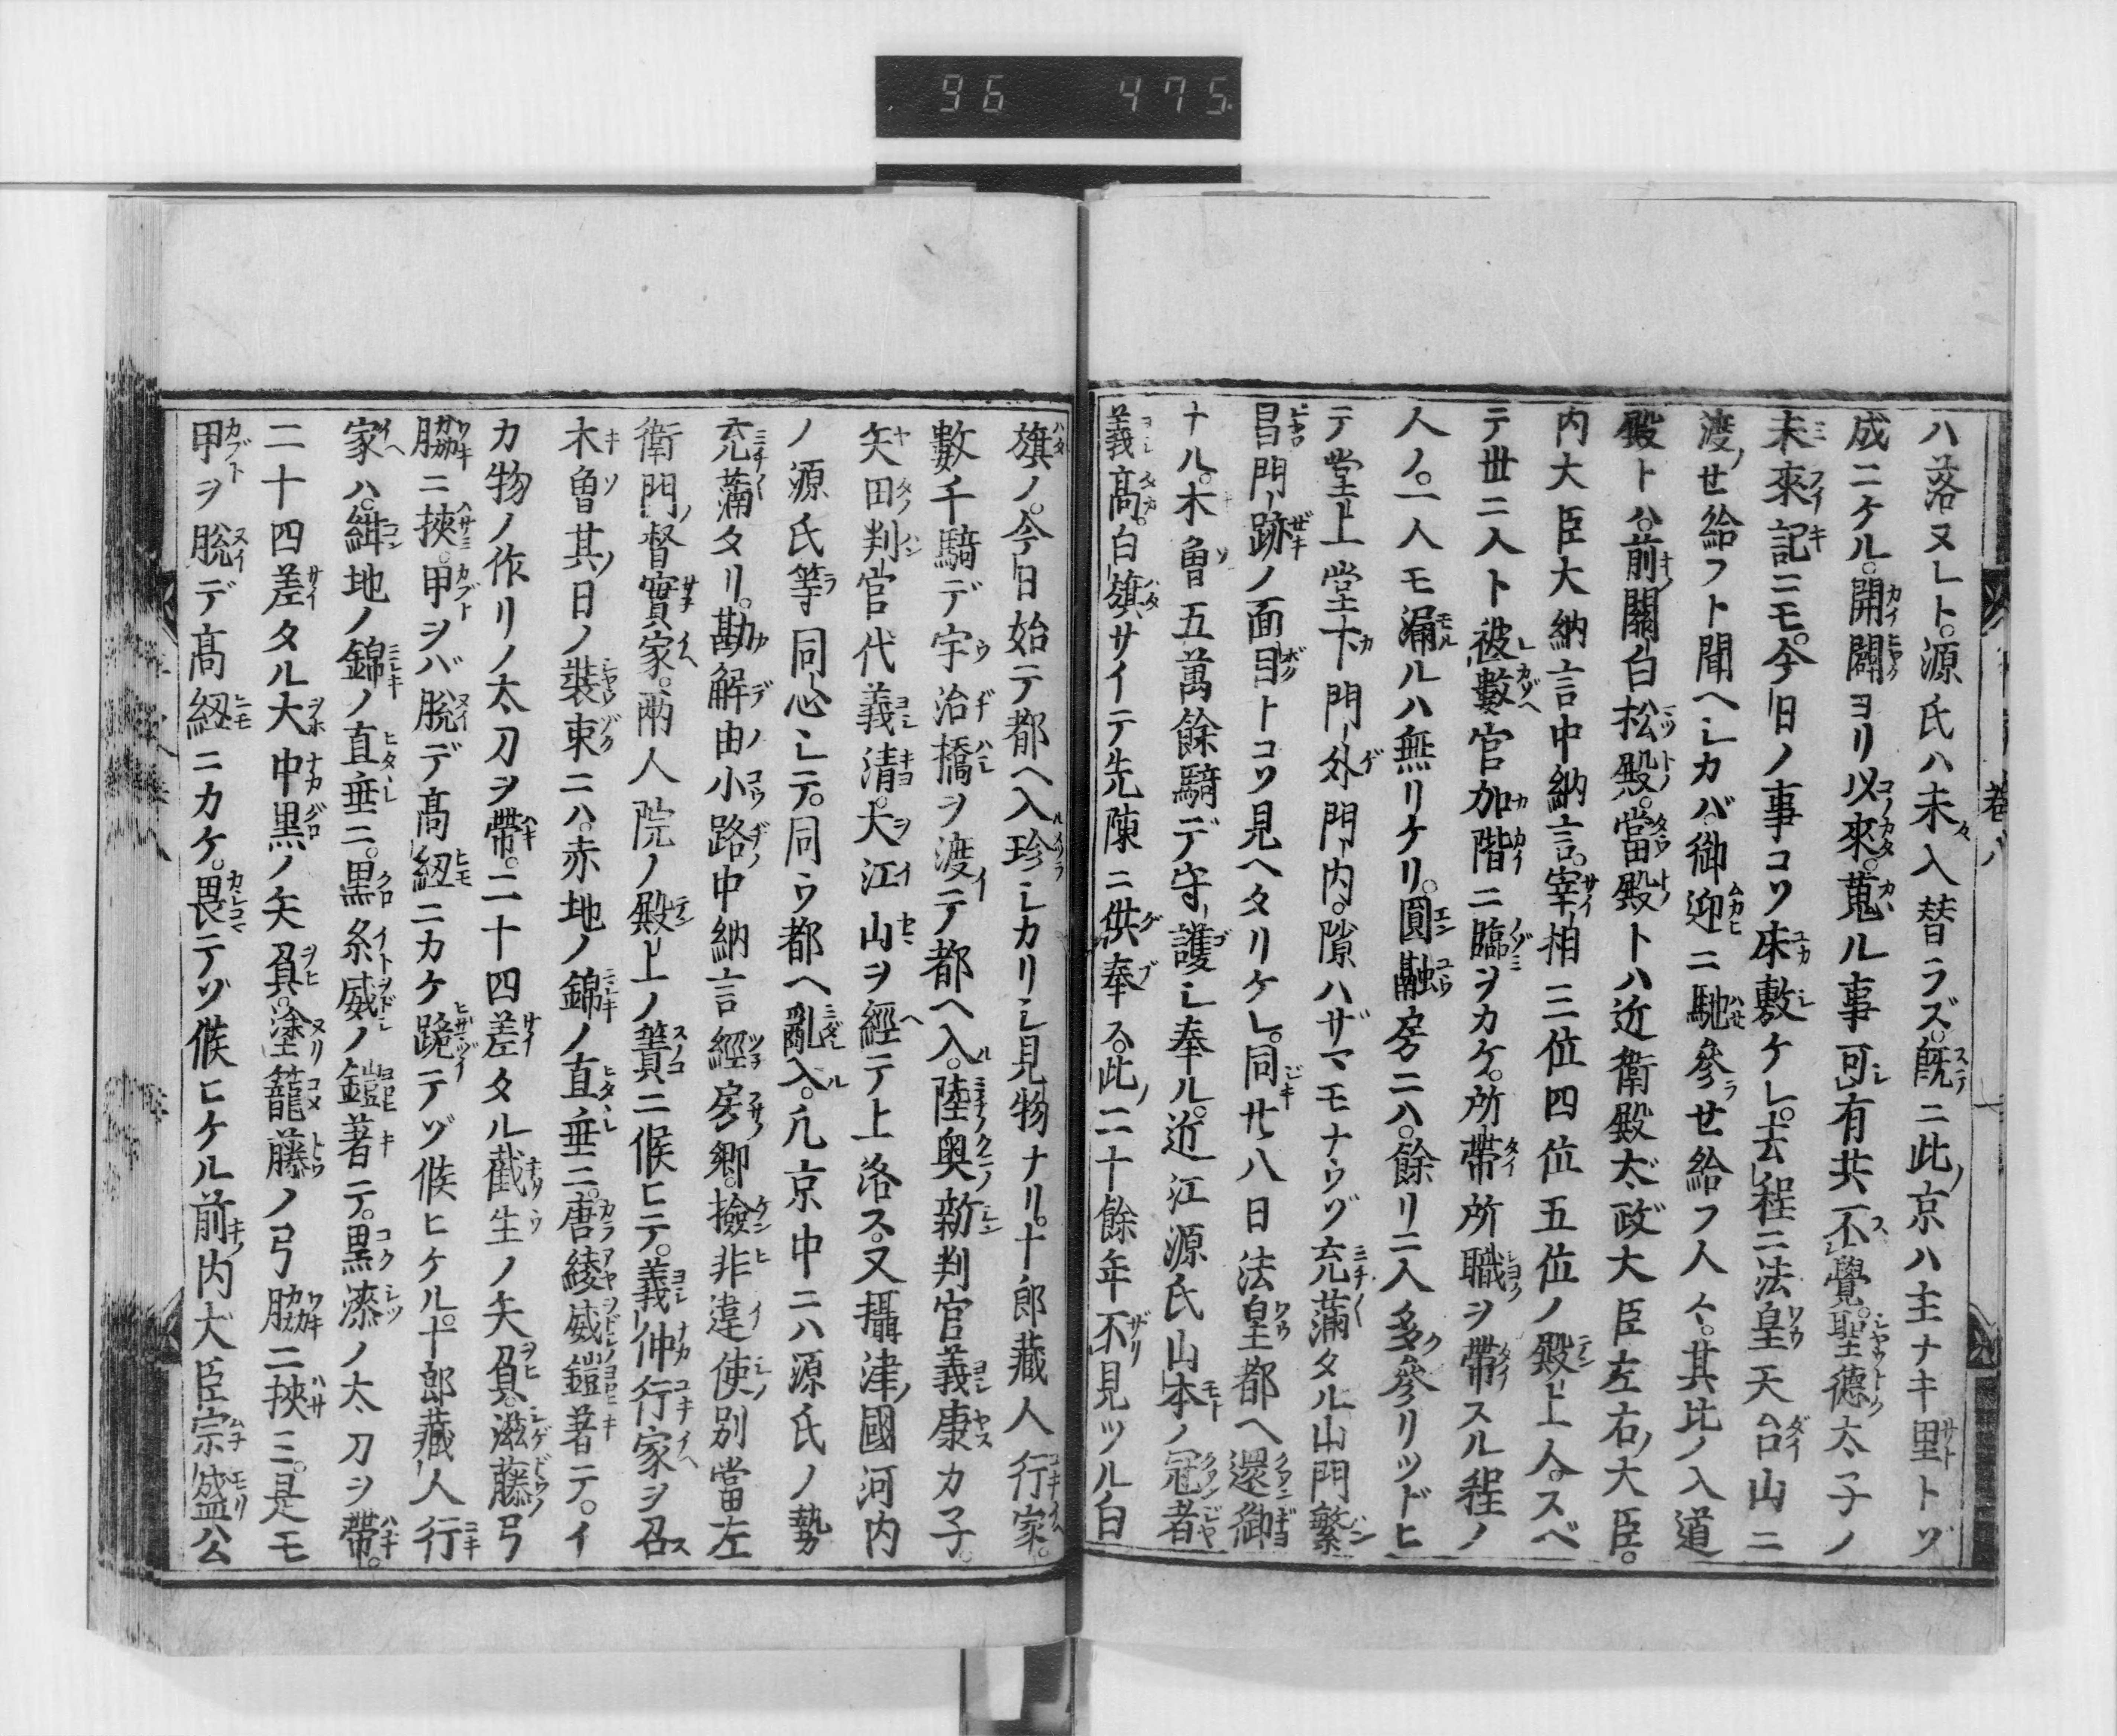 96 475
ハ落ヌレト。源氏ハ未入替ラズ。既ニ此京ハ主ナキ里トゾ
成ニケル。開闢ヨリ以來。蒐ル事可有共不覺。聖德太子ノ
未來記ニモ。今日ノ事コソ床敷ケレ。去程ニ法皇天台山ニ
渡セ給フト聞ヘシカバ。御迎ニ馳參ラセ給フ人々。其比ノ入道
殿トハ。前關白松殿。當殿トハ近衛殿太政大臣左右大臣。
内大臣大納言中納言。宰相三位四位五位ノ殿上人。スベ
テ丗ニ入ト被數官加階ニ臨ヲカケ。所帶所職ヲ帶スル程ノ
人ノ。一人モ漏ルハ無リケリ。圓融房ニハ。餘リニ人多參リツドヒ
テ堂上堂下門外門内。隙ハザマモナウゾ充滿タル山門繁
昌門跡ノ面目トコソ見ヘタリケレ。同廿八日法皇都ヘ還御
ナル。木曽五萬餘騎デ守護シ奉ル。近江源氏山本ノ冠者
義髙。白旗サイテ先陳ニ供奉ス。此二十餘年不見ツル白
卷八
旗ノ。今日始テ都ヘ入珍シカリシ見物ナリ。十郎藏人行家。
數千騎デ宇治橋ヲ渡テ都ヘ入。陸奥新判官義康カ子。
矢田判官代義清。大江山ヲ經テ上洛ス。又攝津國河内
ノ源氏等同心シテ。同ウ都ヘ亂入。凢京中ニハ源氏ノ勢
充滿タリ。勘解由小路中納言經房卿。撿非違使別當左
衛門督實家。兩人院ノ殿上ノ簀ニ候ヒテ。義仲行家ヲ召
木曽其日ノ裝束ニハ。赤地ノ錦ノ直垂ニ。唐綾威鎧著テ。イ
カ物ノ作リノ太刀ヲ帶。二十四差タル截生ノ矢負。滋藤弓
脇ニ挾。甲ヲバ脫デ髙紐ニカケ跪テゾ候ヒケル。十郎藏人行
家ハ。紺地ノ錦ノ直垂ニ。黒糸威ノ鎧著テ。黒漆ノ太刀ヲ帶。
二十四差タル大中黒ノ矢負。塗籠藤ノ弓脇ニ挾ミ。是モ
甲ヲ脫デ髙紐ニカケ。畏テゾ候ヒケル前内大臣宗盛公